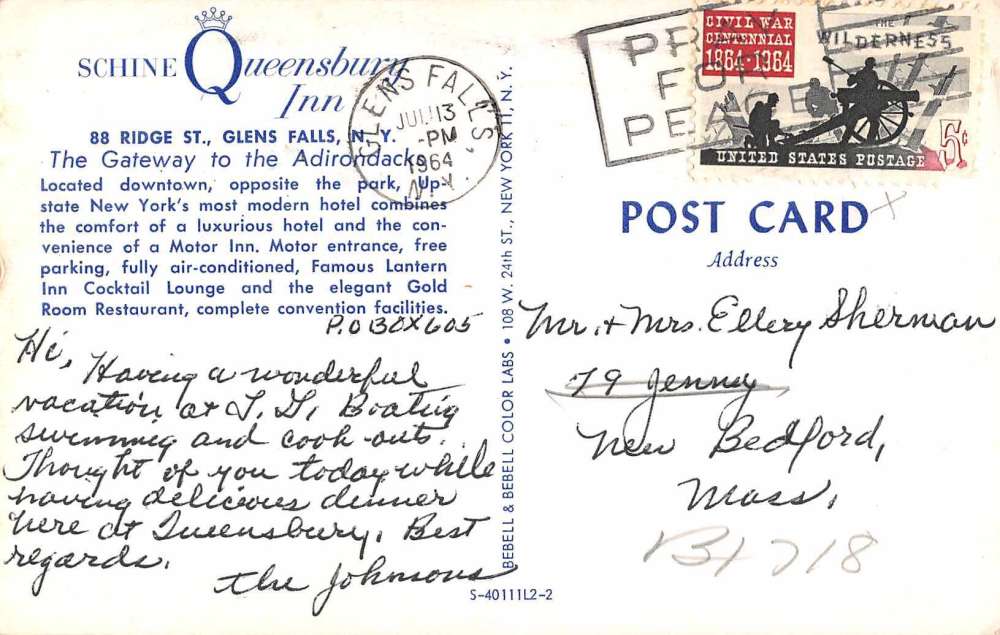 SCHINE Queensbury
Inn
88 RIDGE ST., GLENS FALLS, N. Y.
The Gateway to the Adirondacks
Located downtown, opposite the park, Up-
state New York's most modern hotel combines
the comfort of a luxurious hotel and the con-
venience of a Motor Inn. Motor entrance, free
parking, fully air-conditioned, Famous Lantern
Inn Cocktail Lounge and the elegant Gold
Room Restaurant, complete convention facilities.
P.O BOX 605
Hi,
Having a wonderful
vacation at L. G. Boating
swimming and cook-outs.
Thought of you today while
having delicious dinner
here at Queensbury. Best
regards.
the Johnsons
GLENS FALLS,
JUL 13
-PM
1964
N.Y.
BEBELL & BEBELL COLOR LABS • 108 W. 24th ST., NEW YORK 11, N. Y.
S-40111L2-2
PRAY
FOR
PEACE
CIVIL WAR
CENTENNIAL
1864-1964
THE
WILDERNESS
UNITED STATES POSTAGE
5¢
POST CARD
x
Address
Mr. + Mrs. Ellery Sherman
79 Jenny
New Bedford,
Mass.
718